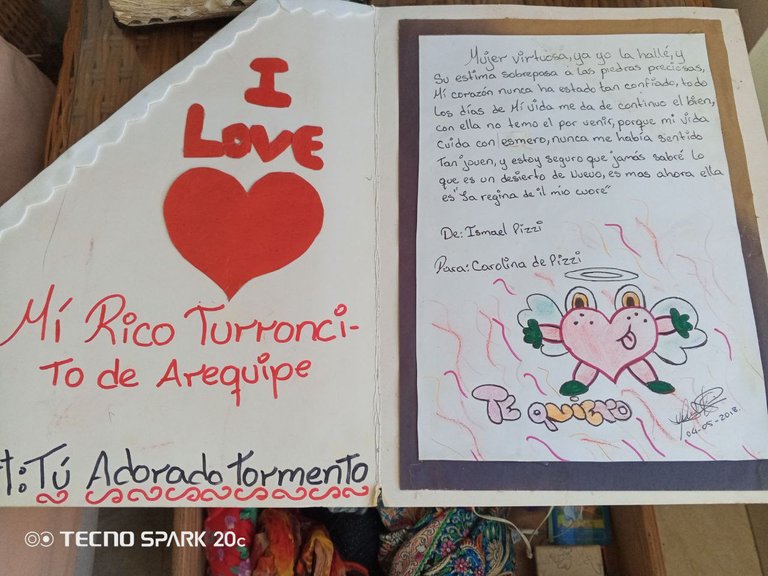 I
LOVE
Mí Rico Turronci-
To de Arequipe
t: Tú Adorado Tormento
Mujer virtuosa, ya yo la hallé, y
Su estima sobrepasa a las piedras preciosas,
Mí corazón nunca ha estado tan confiado, todo
Los días de Mí vida me da de continuo el bien,
con ella no temo el por venir, porque mi vida
cuida con esmero, nunca me había sentido
Tan joven, y estoy seguro que jamás sabré lo
que es un desierto de Nuevo, es mas ahora ella
es "La regina de il mio cuore"
De: Ismael Pizzi
Para: Carolina de Pizzi
TE QUIERO
04-05-2018.
TECNO SPARK 20C